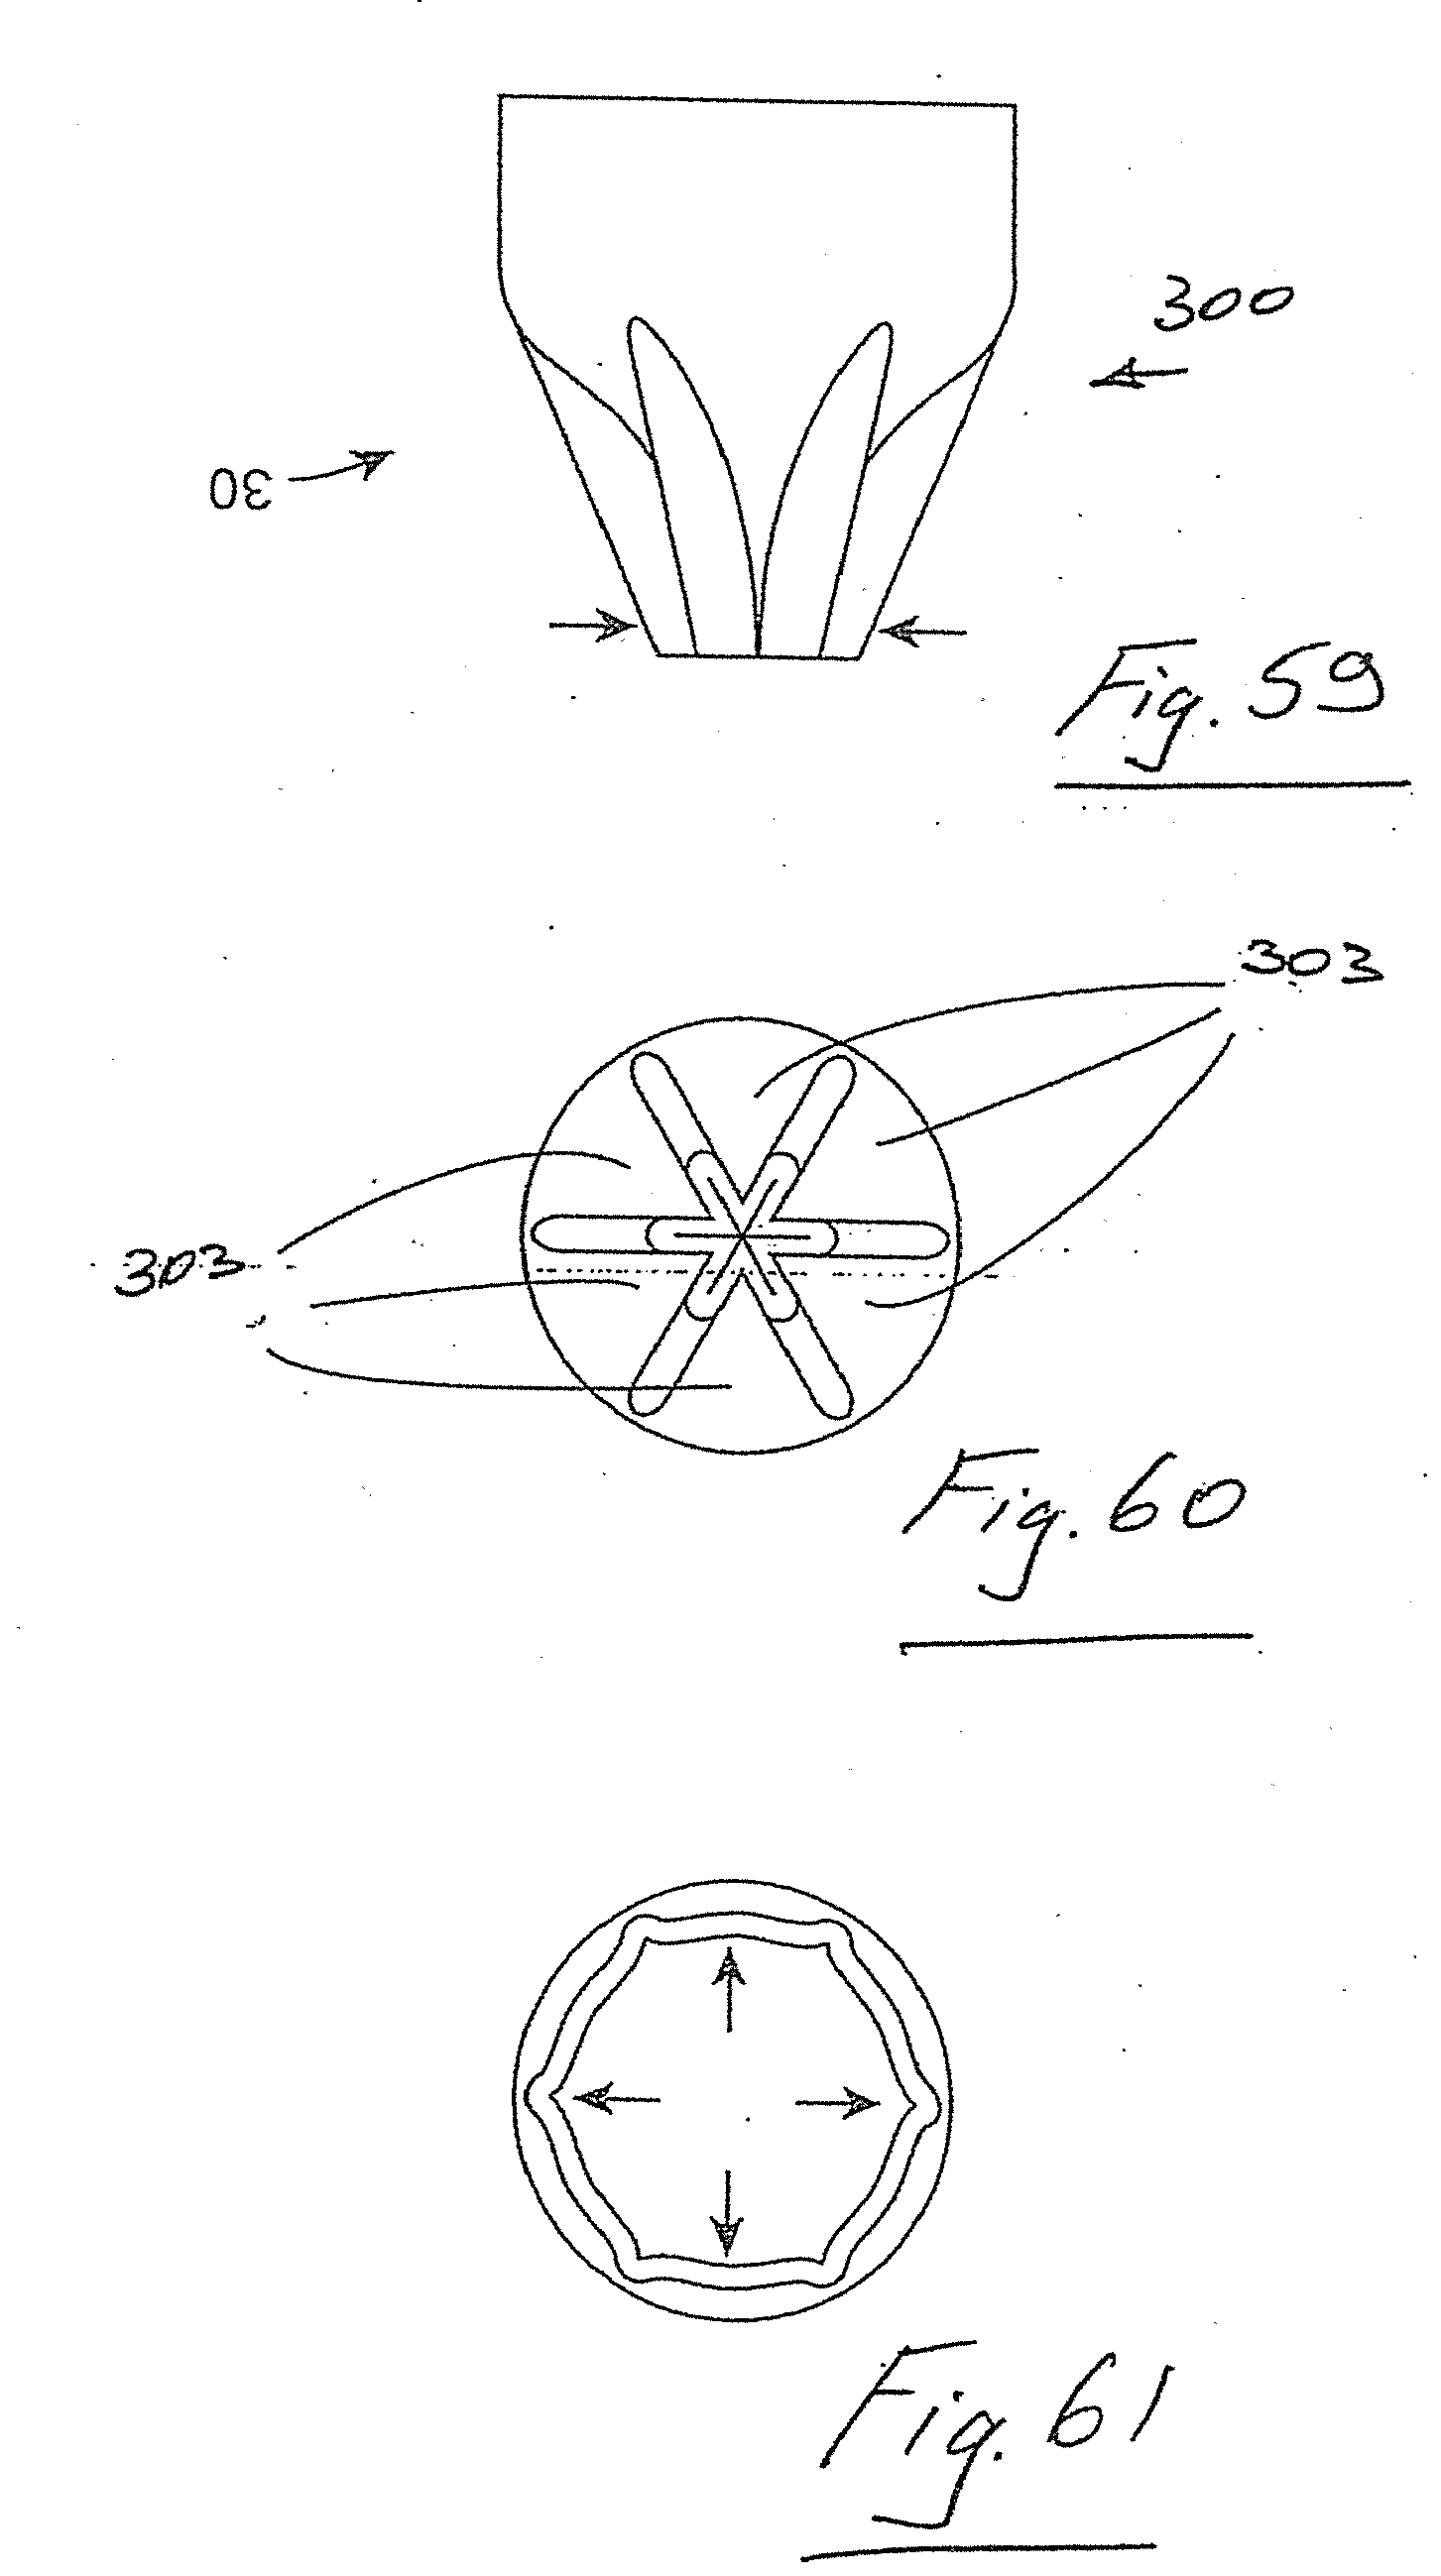 300
30
Fig. 59
303
303
Fig. 60
Fig. 61